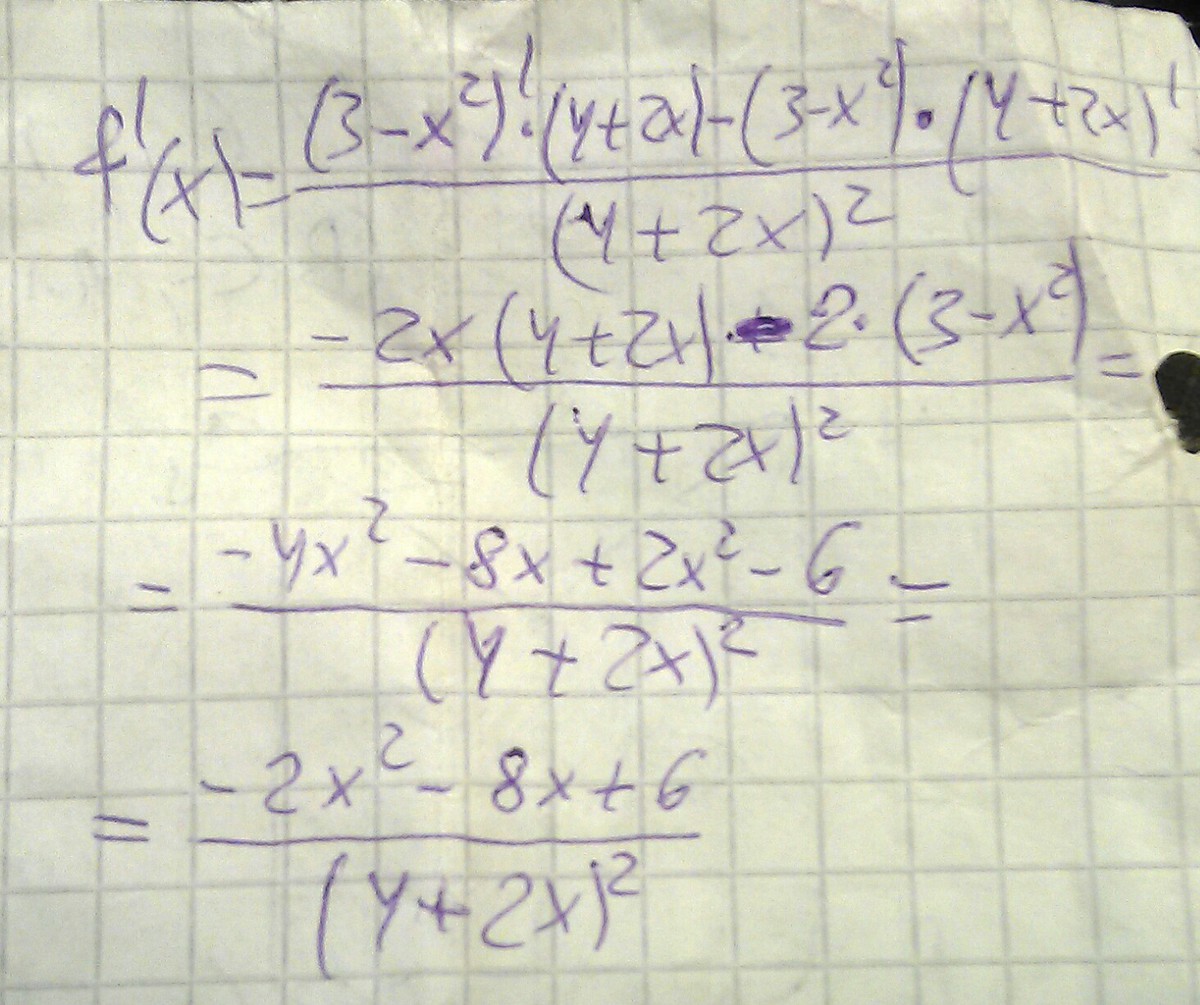 f'(x) = ((3-x²)'·(4+2x)-(3-x²)·(4+2x)')/(4+2x)²
= (-2x(4+2x)-2·(3-x²))/(4+2x)² =
= (-4x²-8x+2x²-6)/(4+2x)² =
= (-2x²-8x+6)/(4+2x)²